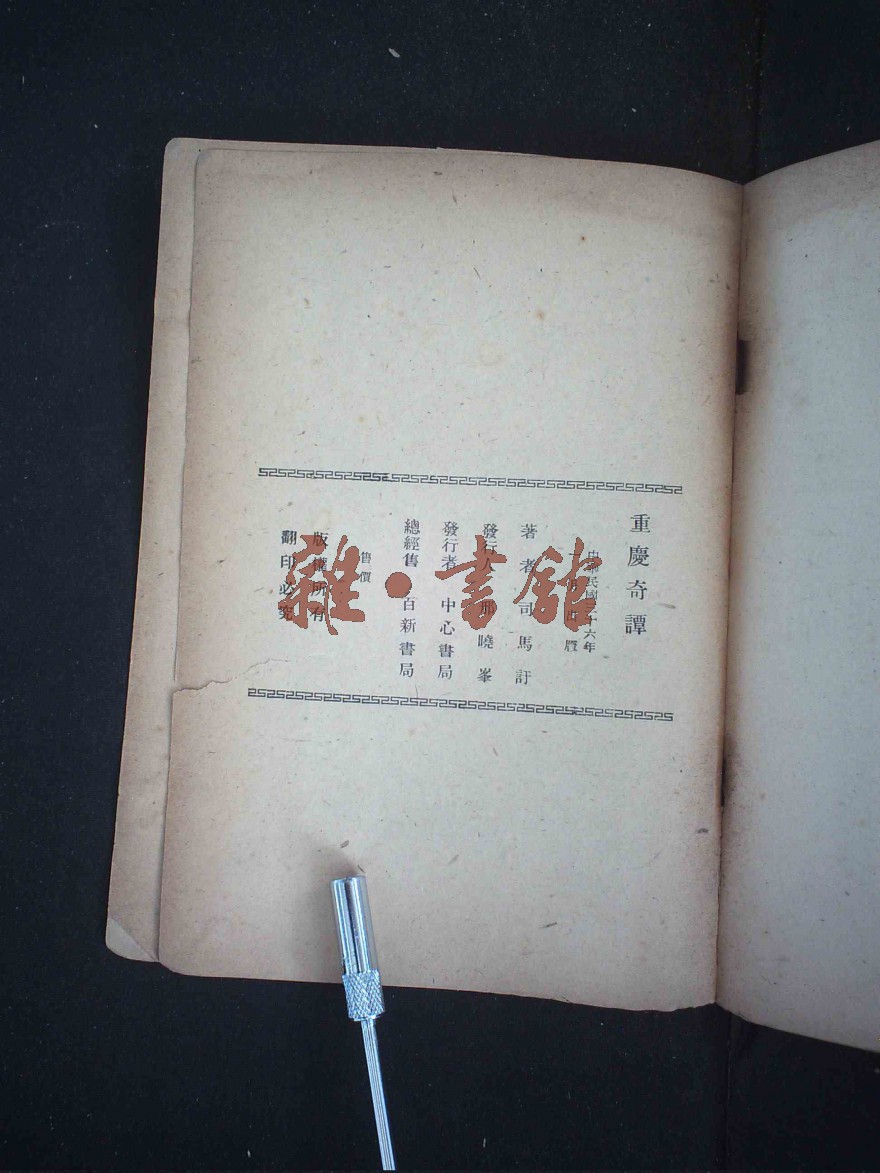 重慶奇譚
中華民國三十六年
一月出版
著者 司馬訏
發行人 曉峯
發行者 中心書局
總經售 百新書局
售價
版權所有
翻印必究
雜·書館